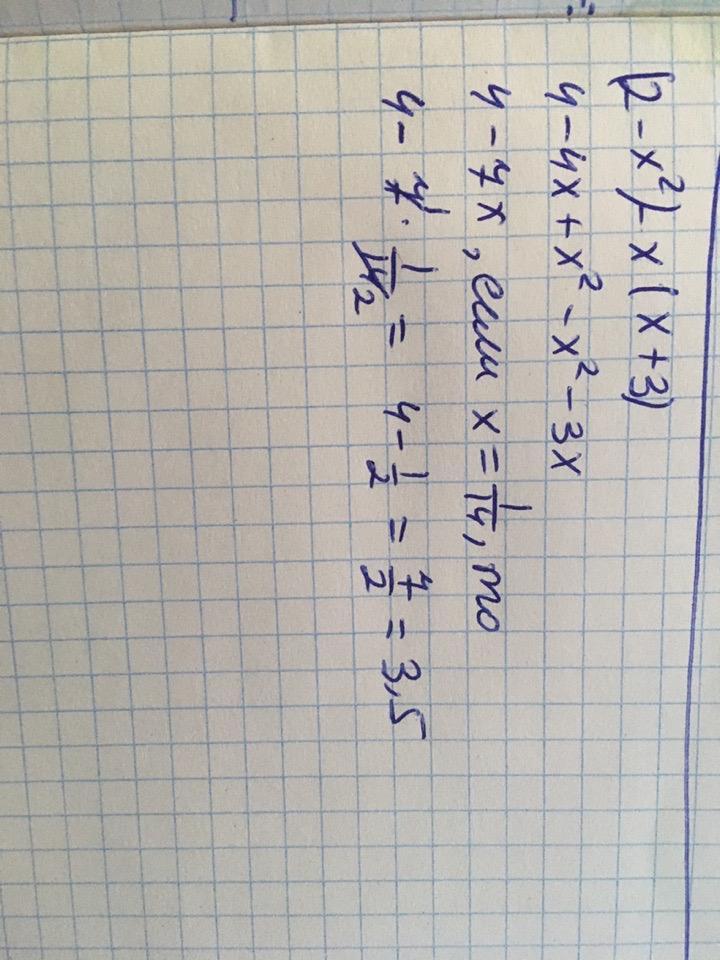 (2-x²)-x(x+3)
4-4x+x²-x²-3x
4-7x, если x=1/14, то
4-7¹·1/14₂ = 4-1/2 = 7/2 = 3,5